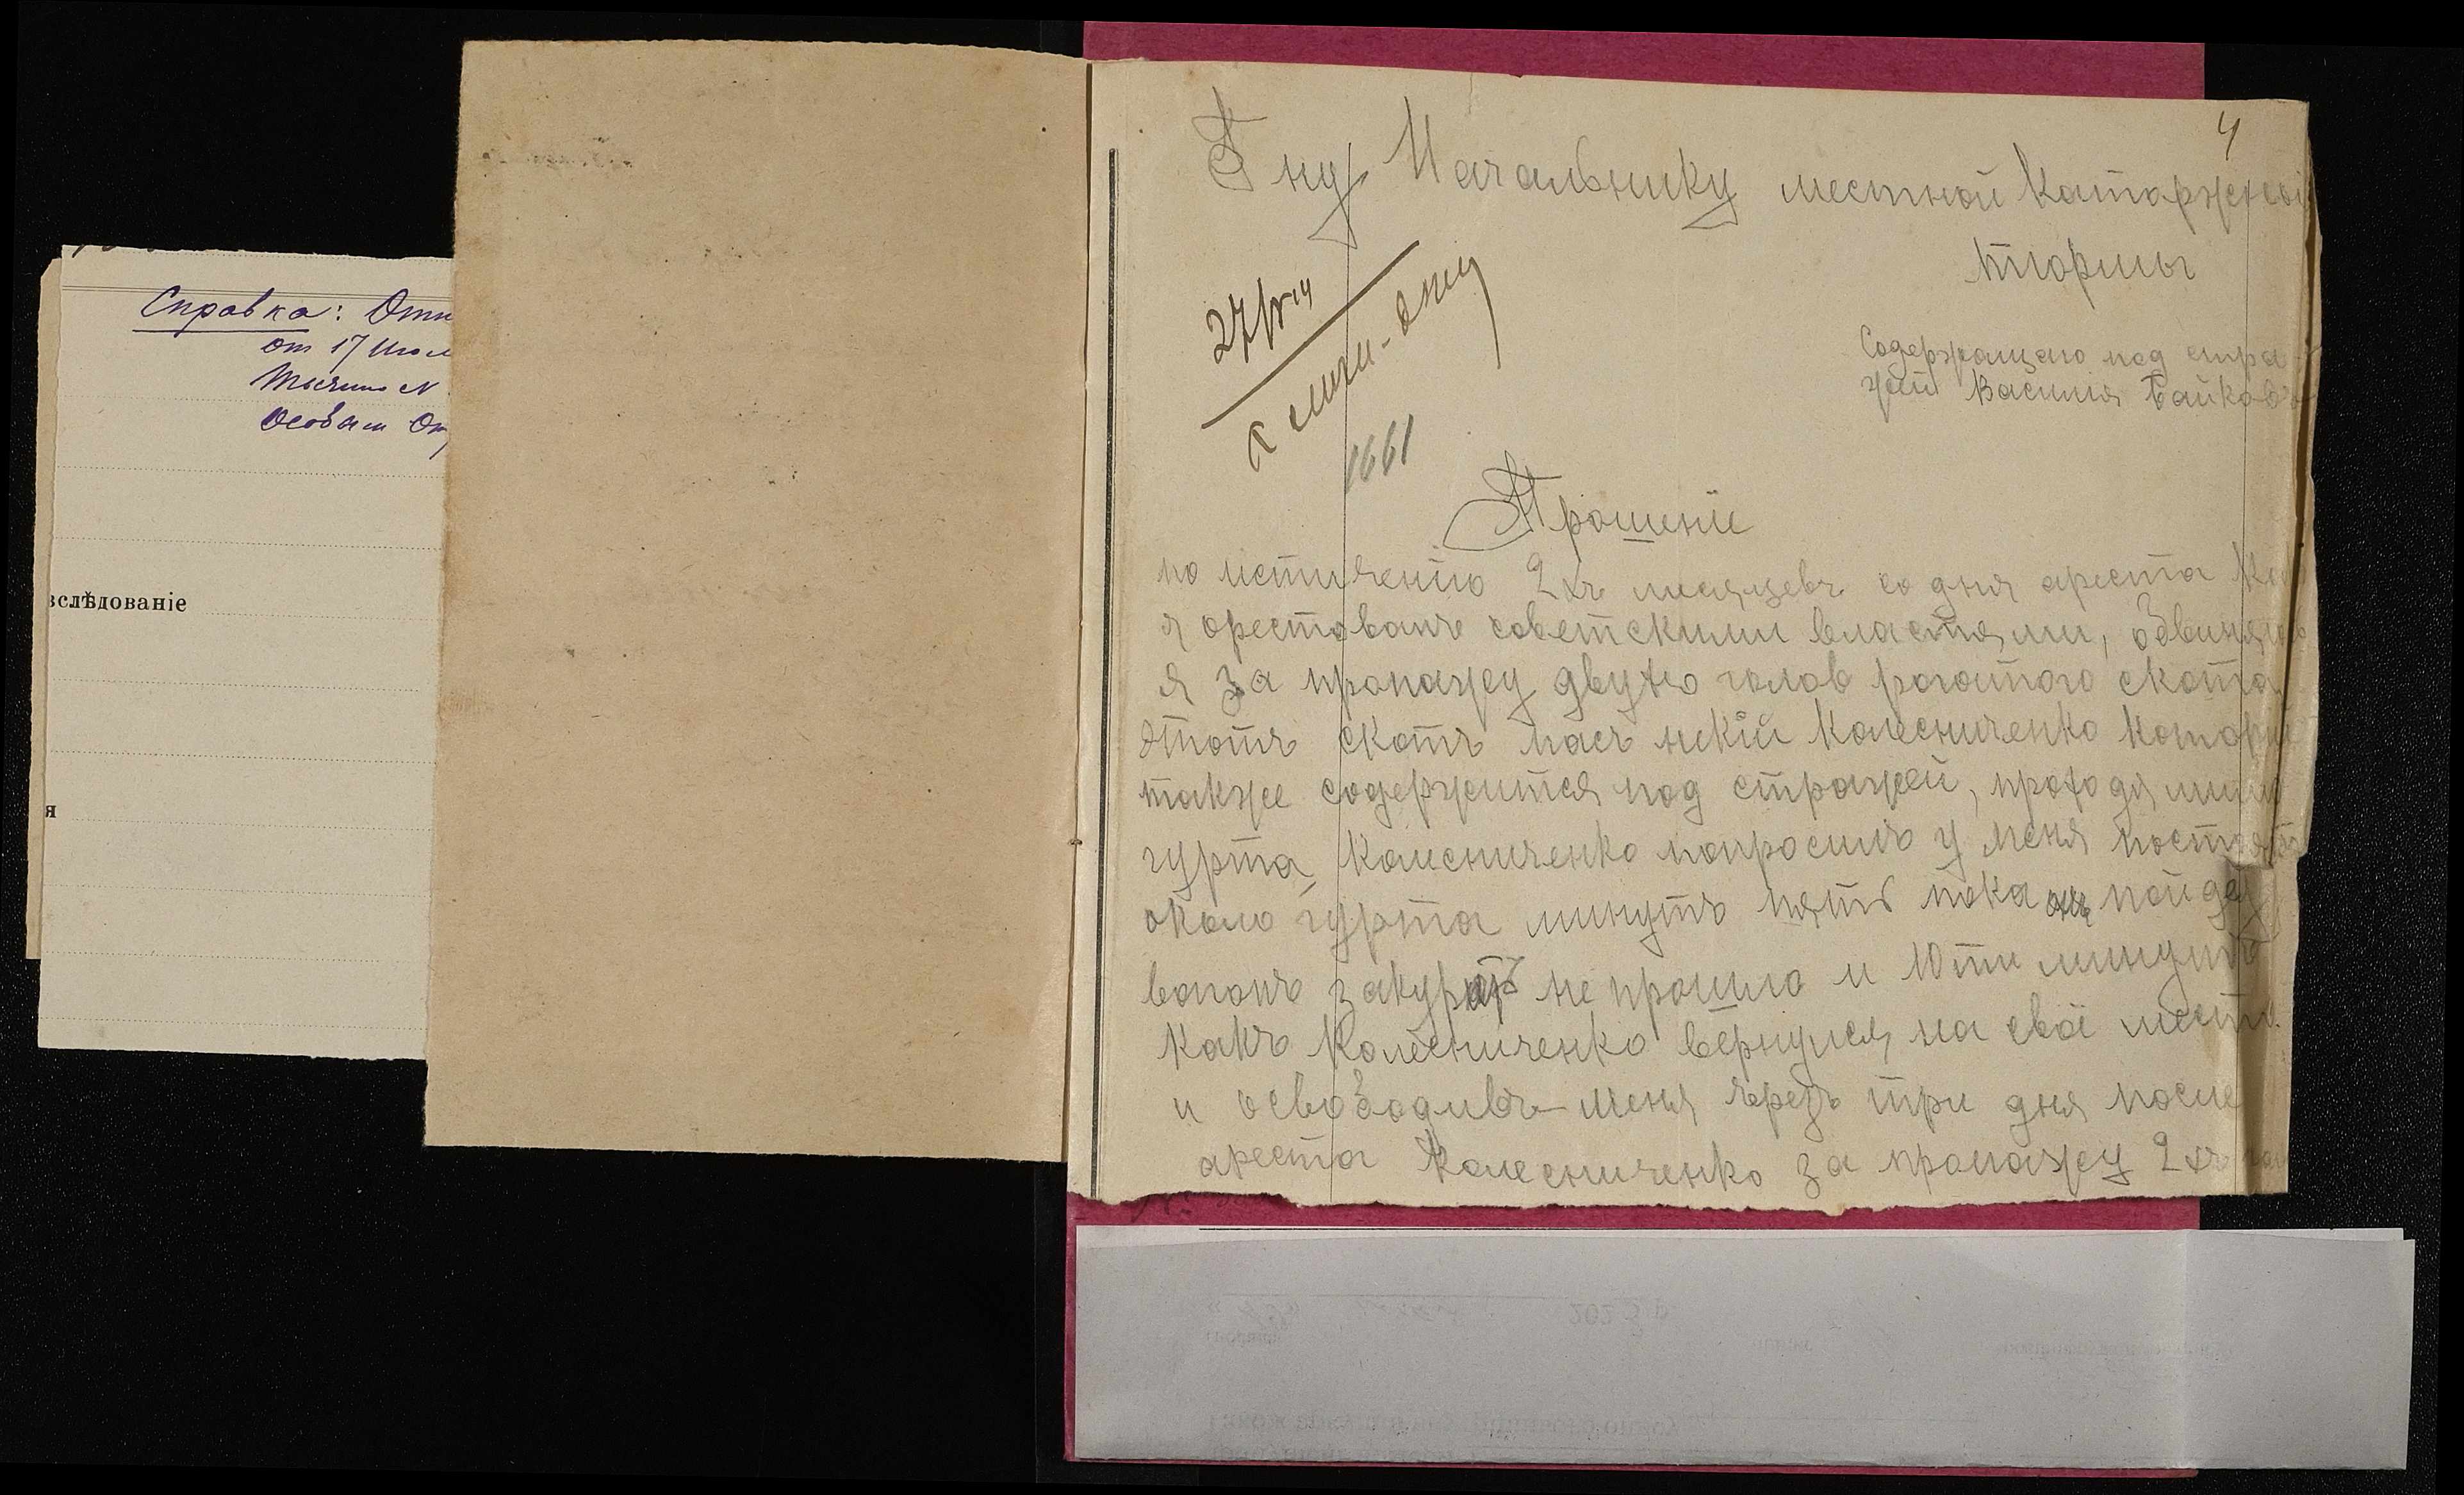 Справка: Отн
от 17 Июл
Тысячи N
Особым От
зслѣдованіе
я
4
Гну Начальнику местной Катаржной
тюрмы
27/VIII
к личн. делу
1661
Содержащаго под стра
жей Василия Байкова
Прошеніе
по истичению 2хъ месяцевъ со дня ареста Ка
я орестованъ советскими властями, обвиняюсь
я за пропажу двухъ голов рогатого скота
этотъ скотъ пасъ некій Колесниченко которы
также содержится под стражей, проходя мимо
гурта, Колесниченко попросилъ у меня постоять
около гурта минутъ пять пока онъ пойде
вагонъ закурить не прошло и 10ти минутъ
какъ Колесниченко вернулся на своё место
и освободивъ меня черезъ три дня после
ареста Колесниченко за пропажу 2хъ гол